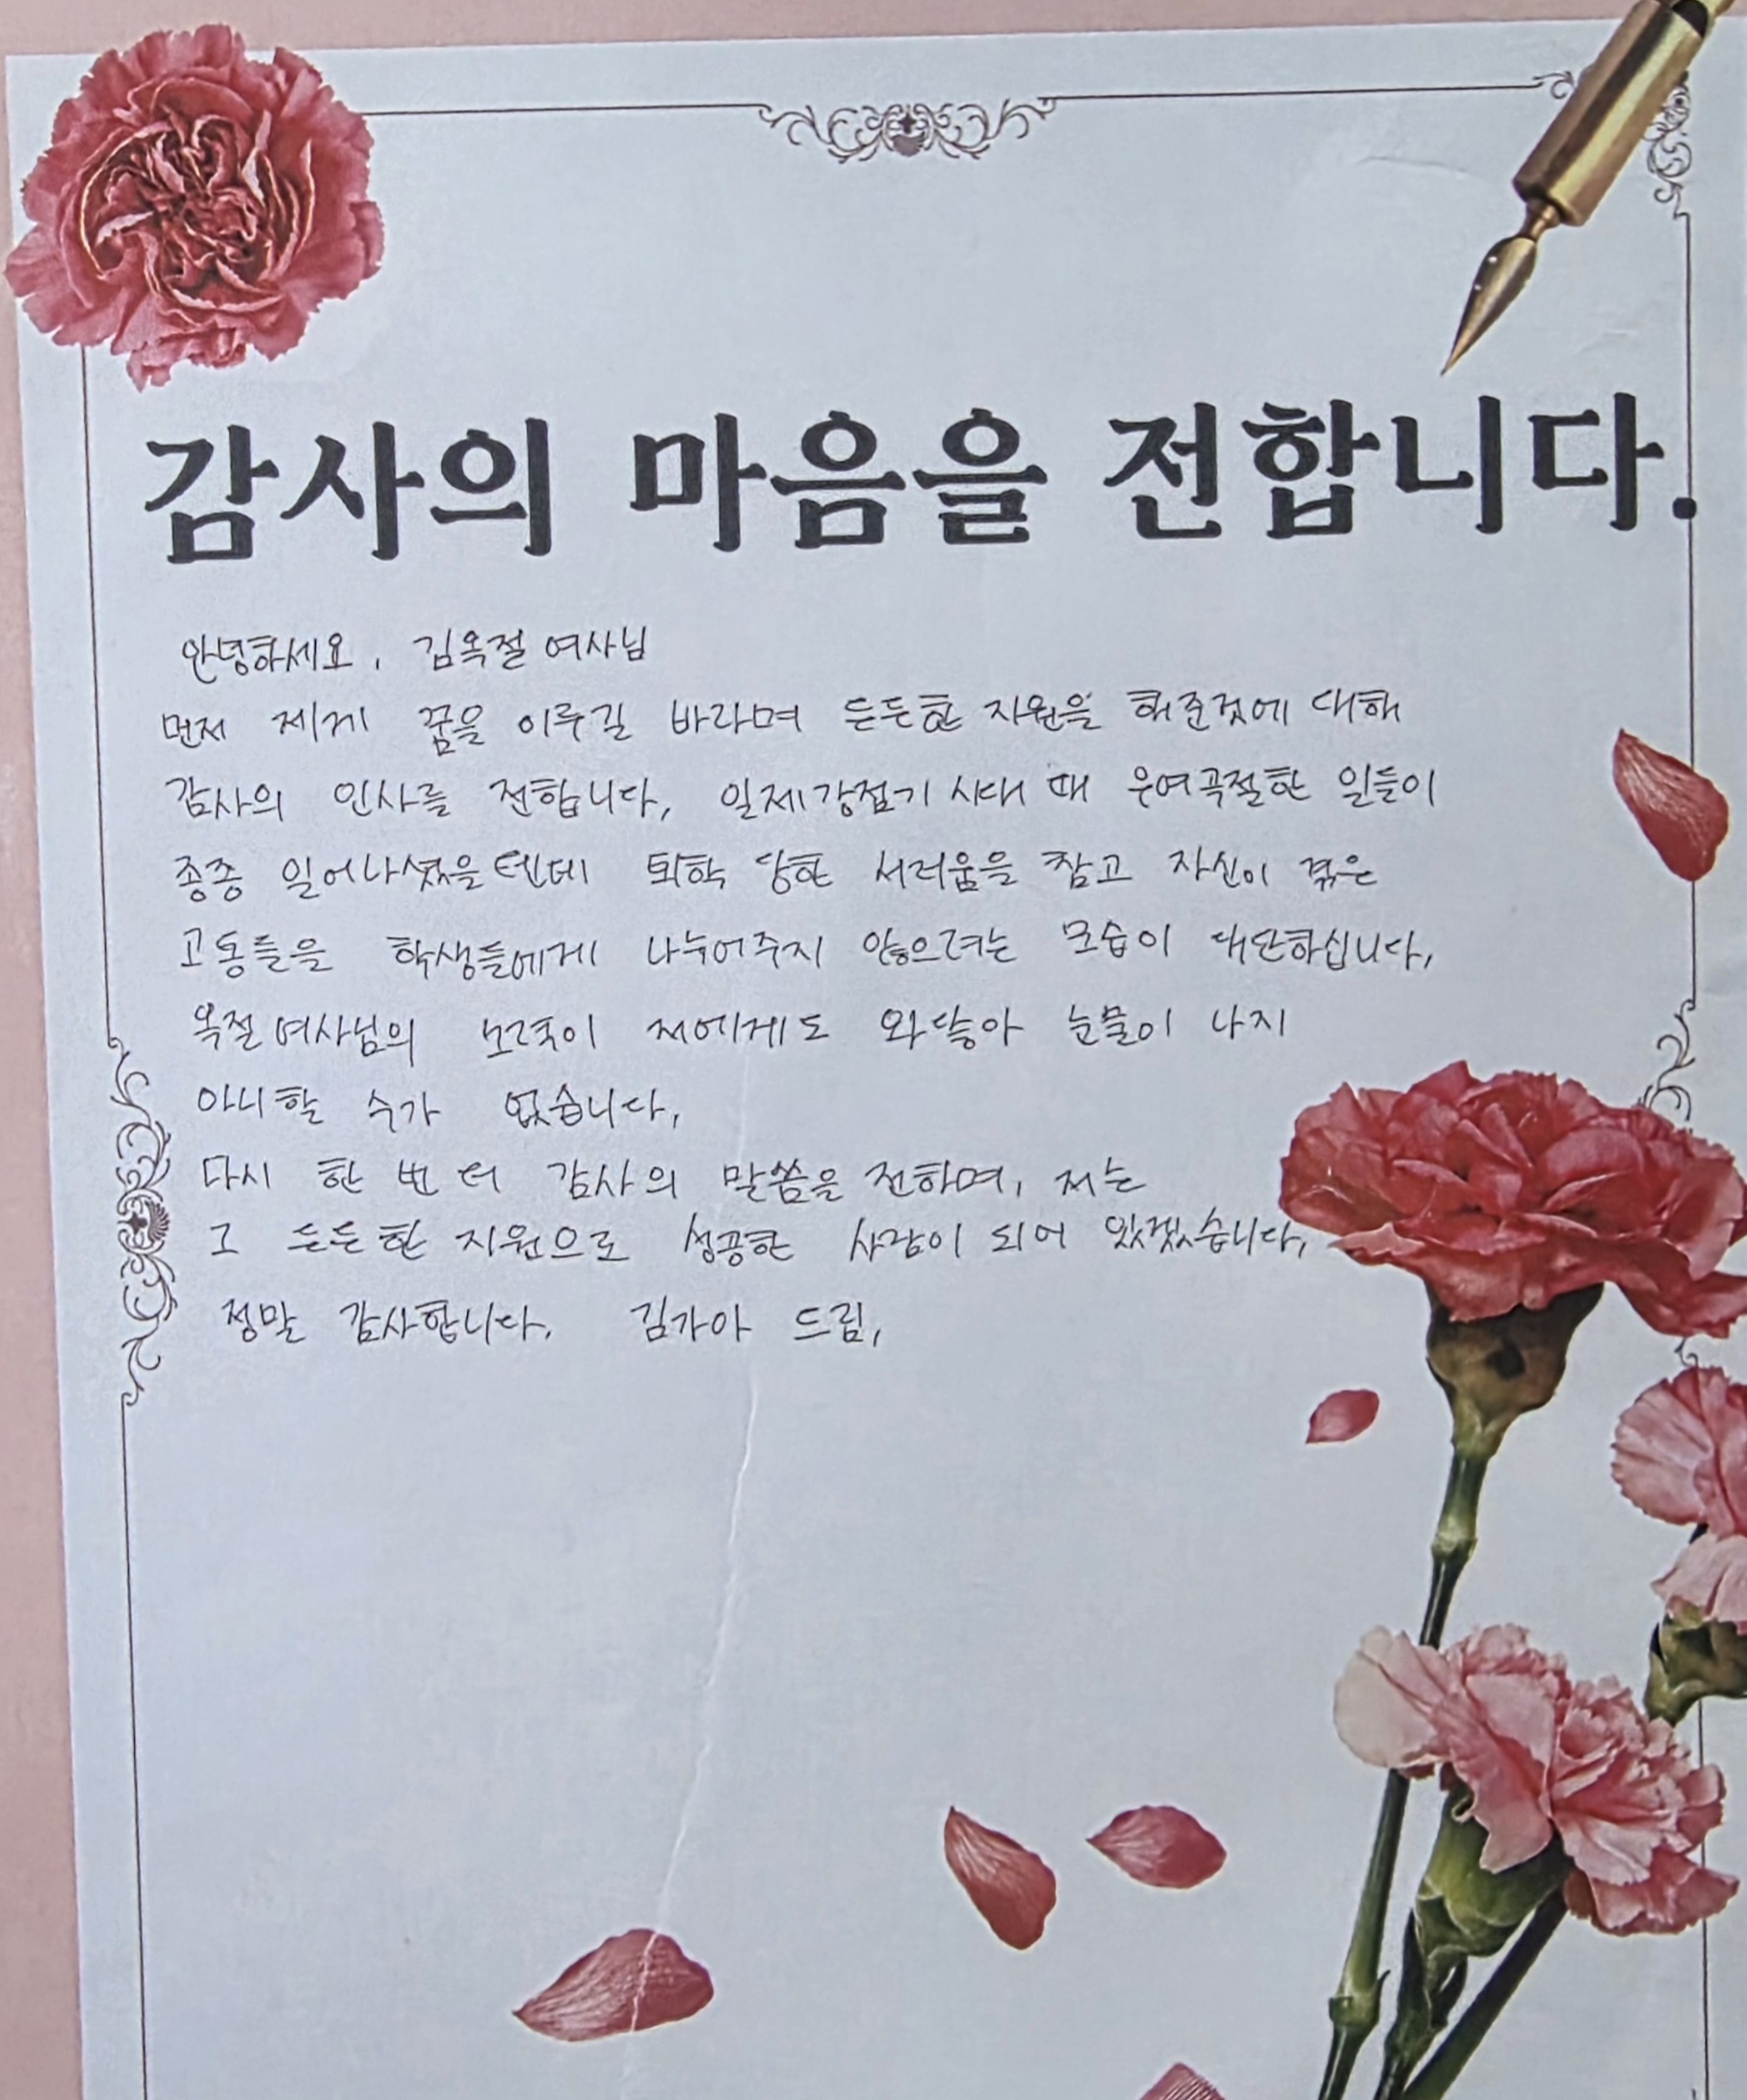 감사의 마음을 전합니다.
안녕하세요, 김옥절 여사님
먼저 제게 꿈을 이루길 바라며 든든한 지원을 해준것에 대해
감사의 인사를 전합니다, 일제강점기 시대 때 우여곡절한 일들이
종종 일어나셨을텐데 퇴학 당한 서러움을 참고 자신이 겪은
고통들을 학생들에게 나누어주지 않으려는 모습이 대단하십니다,
옥절여사님의 노력이 저에게도 와닿아 눈물이 나지
아니할 수가 없습니다,
다시 한 번 더 감사의 말씀을 전하며, 저는
그 든든한 지원으로 성공한 사람이 되어 있겠습니다,
정말 감사합니다. 김가아 드림,